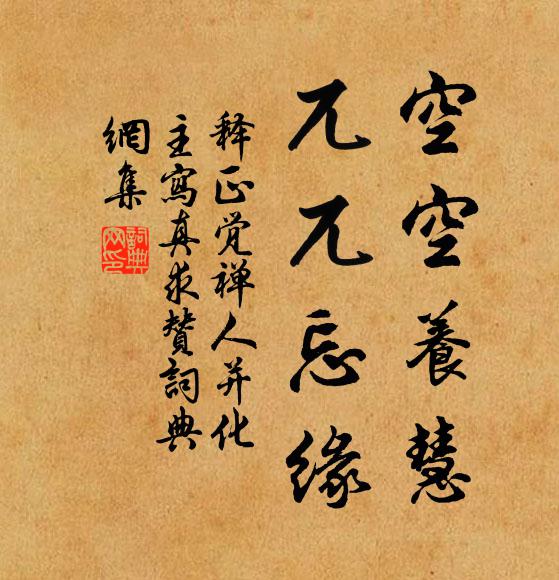 空空養慧
兀兀忘缘
释正觉禅人并化
主寫真求贊詞典
網集
詞典網印